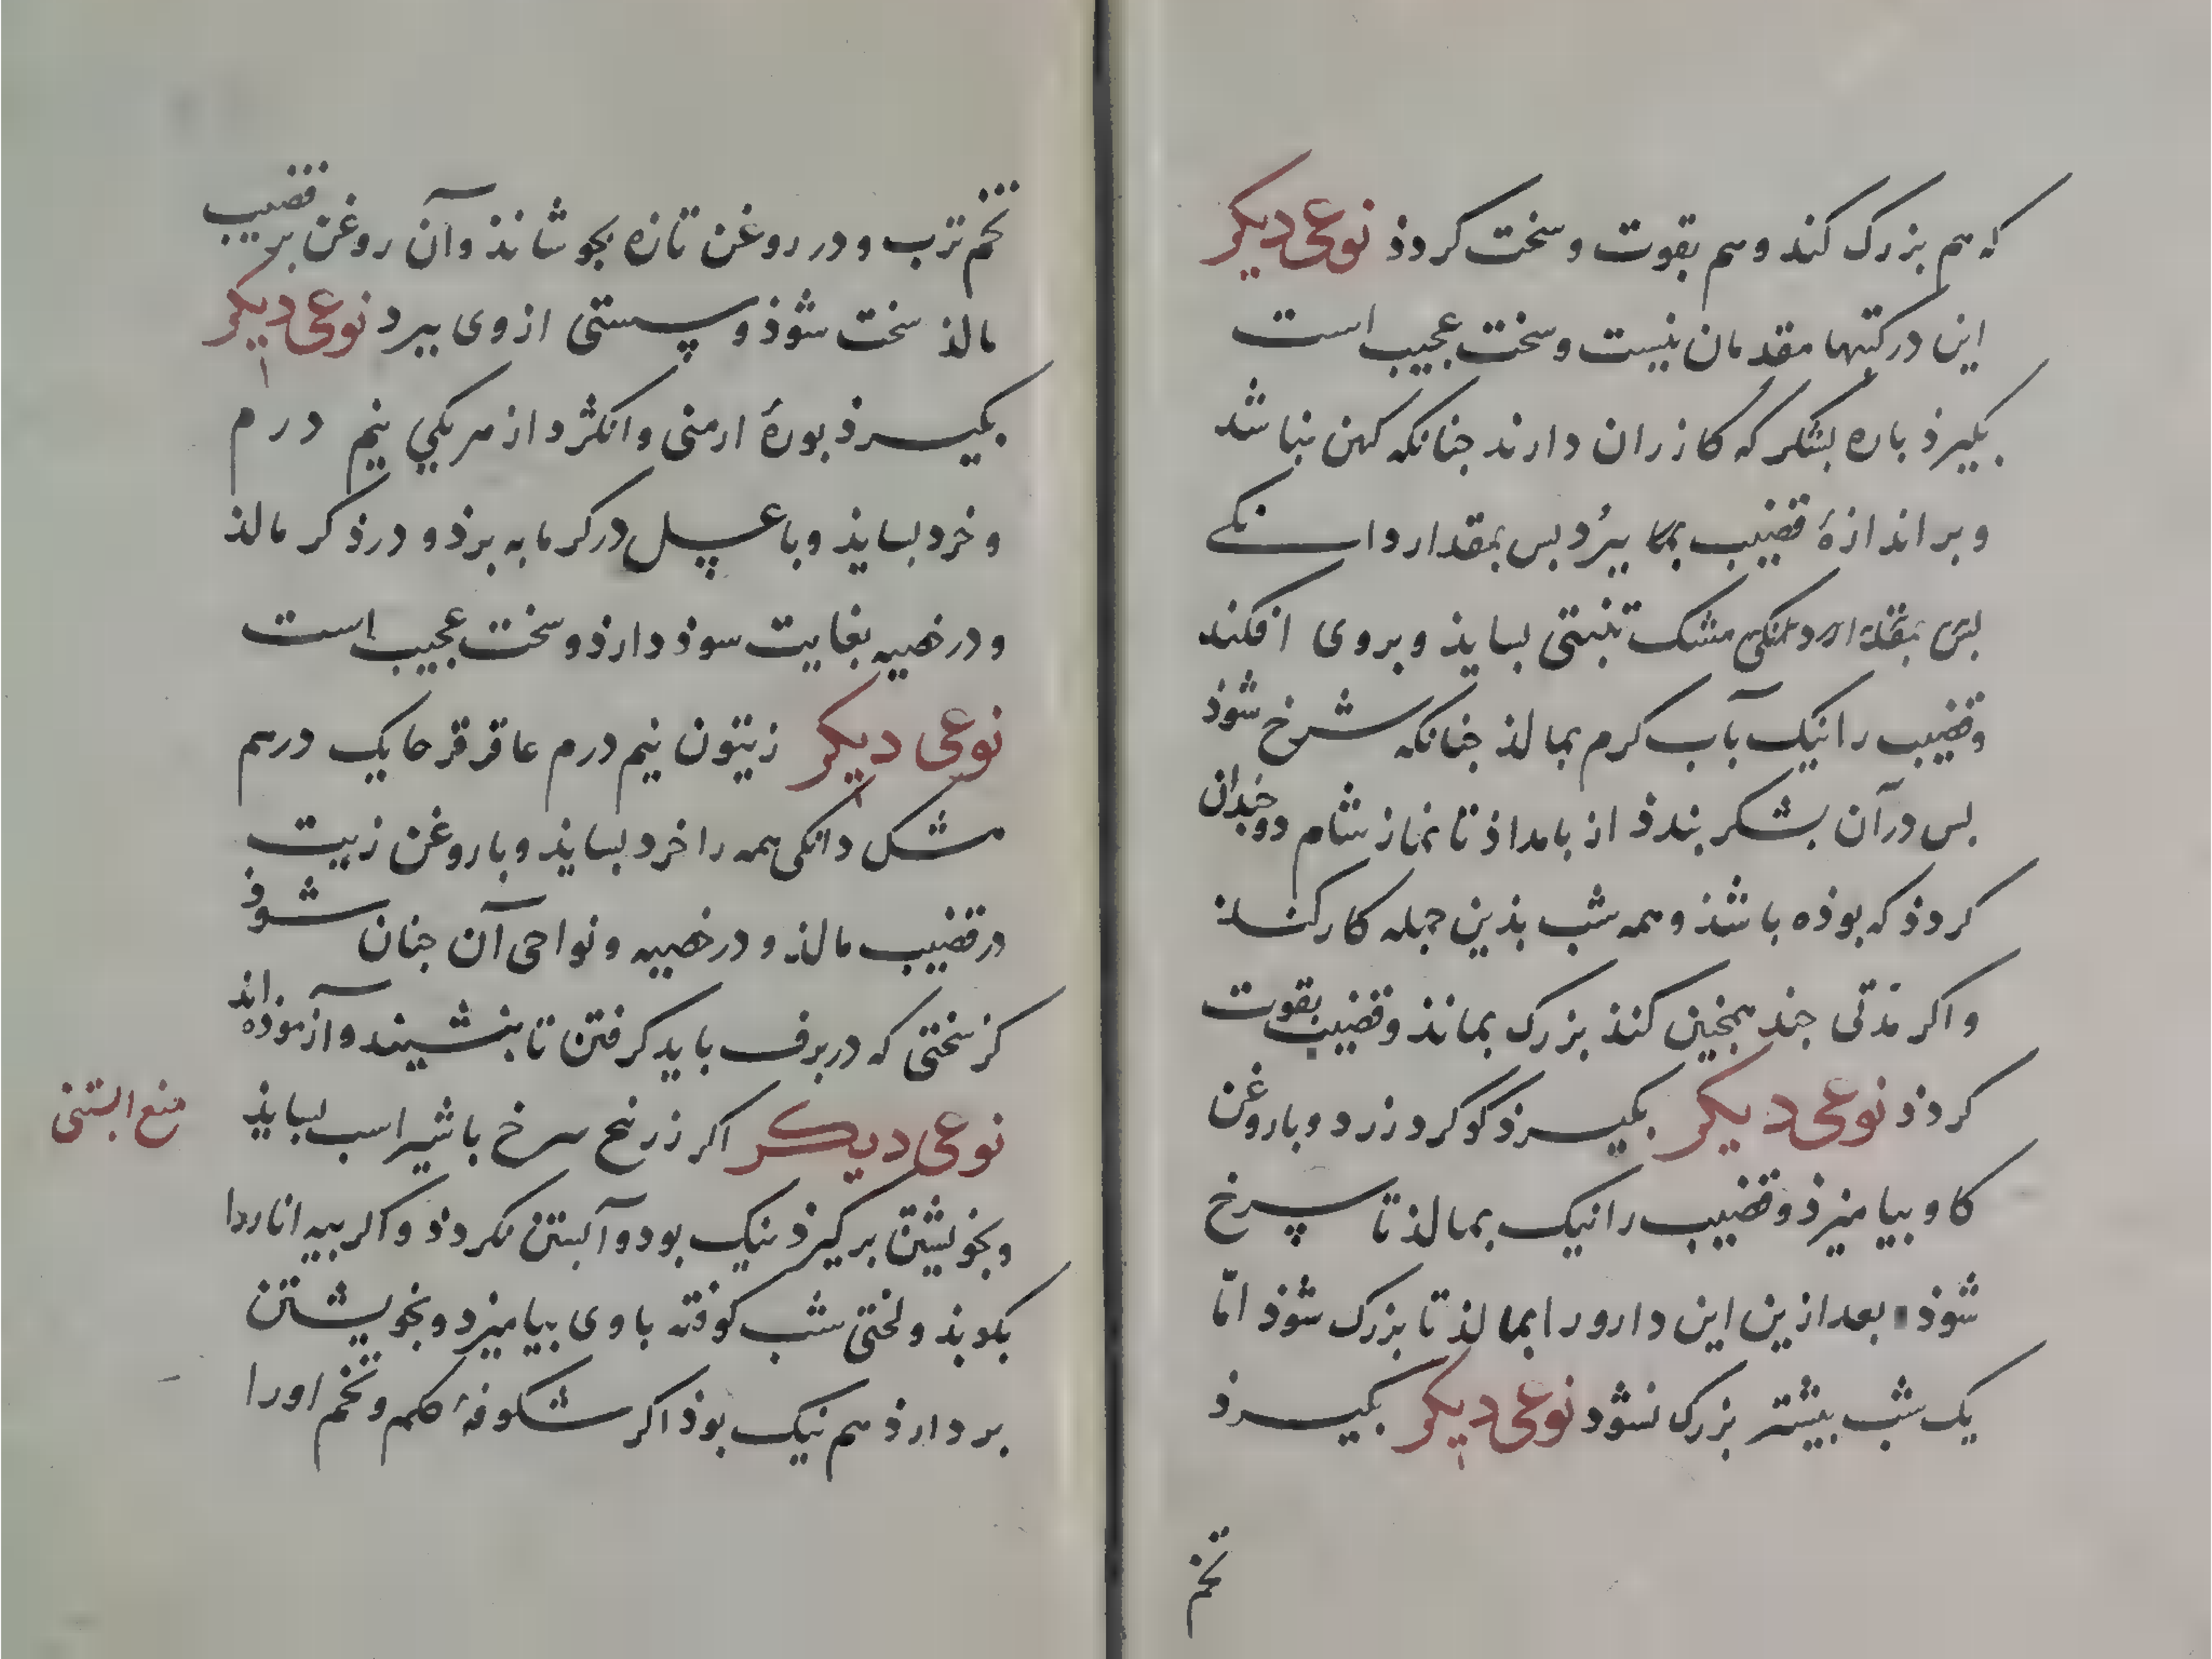 که هم بزرک کند وهم بقوت وسخت کردذ نوعی دیکر
این درکتبها مقدمان نیست وسخت عجیب است
بکیرذ باره بشکر که کازران دارند جنانکه کهن نباشد
وبر اندازهٔ قضیب بکا ببرُد بس بمقدار دانکے
بس بمقدار دانکی مشک تبتی بسایذ وبروی افکند
وقضیب را نیک بآب کرم بمالذ جنانکه سُرخ شوذ
بس درآن بشکر بندذ از بامداذ تا نماز شام دوجندان
کردذ که بوذه باشذ وهمه شب بذین جمله کارکند
واکر مدّتی جند همجنین کنذ بزرک بمانذ وقضیب بقوت
کردذ نوعی دیکر بکیرذ گوگرد زرد وباروغن
کاو بیامیزذ وقضیب را نیک بمالذ تا سرخ
شوذ بعد ازین این دارو را بمالذ تا بزرک شوذ امّا
یک شب بیشتر بزرک نشوذ نوعی دیکر بکیرذ
تخم
تخم ترب ودر روغن تازه بجوشانذ وآن روغن بر قضیب
مالذ سخت شوذ وسستی ازوی ببرد نوعی دیکر
بکیرذ بورهٔ ارمنی وانکژد از هریکي نیم درم
وخرد بسایذ وباعسل درکرمابه برذ و درذکر مالذ
ودرخصیه بغایت سوذ دارذ وسخت عجیب است
نوعی دیکر زیتون نیم درم عاقرقرحا یک درهم
مشک دانکی همه را خرد بسایذ وباروغن زیت
درقضیب مالذ ودرخصیه ونواحی آن جنان شوذ
کز سختی که دربرف باید کرفتن تا بنشیند وآزموذه اند
نوعی دیکر اکر زرنیخ سرخ باشیر اسب بسایذ
منع ابستنی
وبخویشتن برکیرذ نیک بود وآبستن نکردذ واکر بیه انار را
بکوبذ ولختی شب کوفته باوی بیامیزد وبخویشتن
بردارذ هم نیک بوذ اکر شکوفهٔ کلم وتخم او را